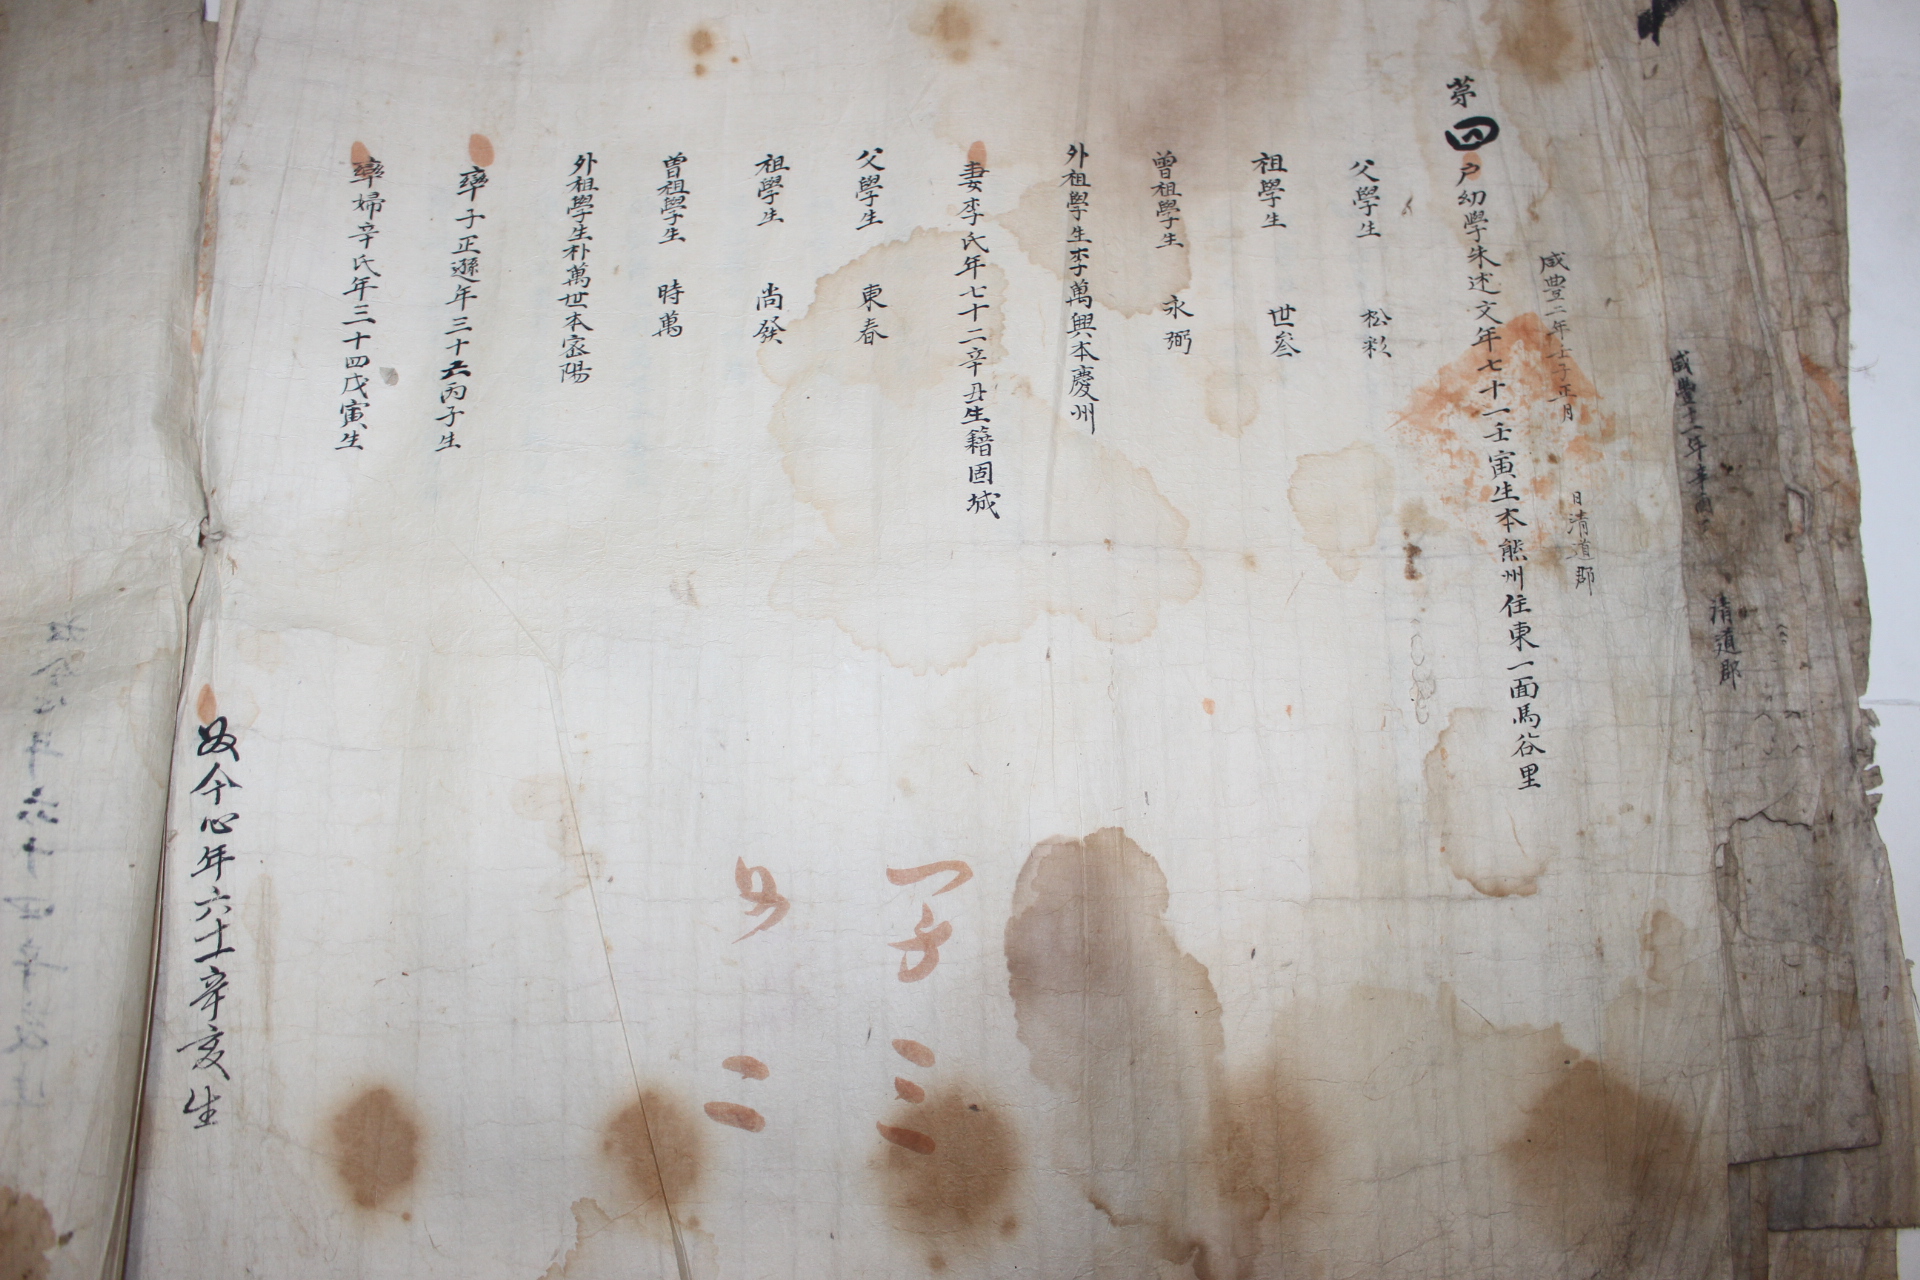 咸豐十一年辛酉
清道郡
咸豐二年壬子正月 日清道郡
第四戶幼學朱述文年七十一壬寅生本熊州住東一面馬谷里
父學生 松彩
祖學生 世叅
曾祖學生 永弼
外祖學生李萬興本慶州
妻李氏年七十二辛丑生籍固城
父學生 東春
祖學生 尚發
曾祖學生 時萬
外祖學生朴萬世本密陽
率子正遜年三十五丙子生
率婦辛氏年三十四戊寅生
奴今心年六十一辛亥生
男二
女三